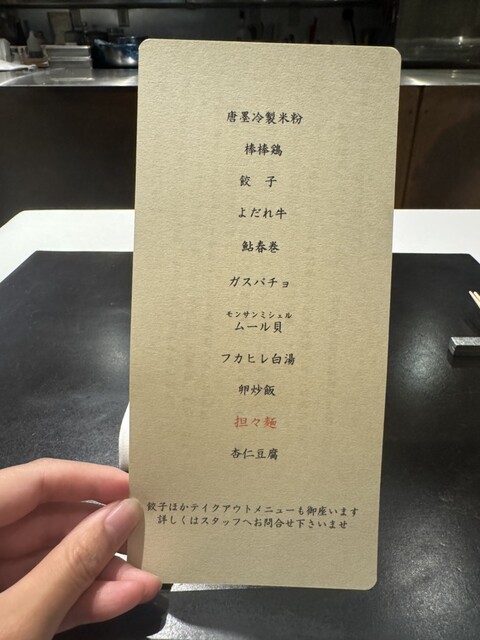 唐墨冷製米粉
棒棒鶏
餃 子
よだれ牛
鮎春巻
ガスパチョ
モンサンミシェル
ムール貝
フカヒレ白湯
卵炒飯
担々麺
杏仁豆腐
餃子ほかテイクアウトメニューも御座います
詳しくはスタッフへお問合せ下さいませ